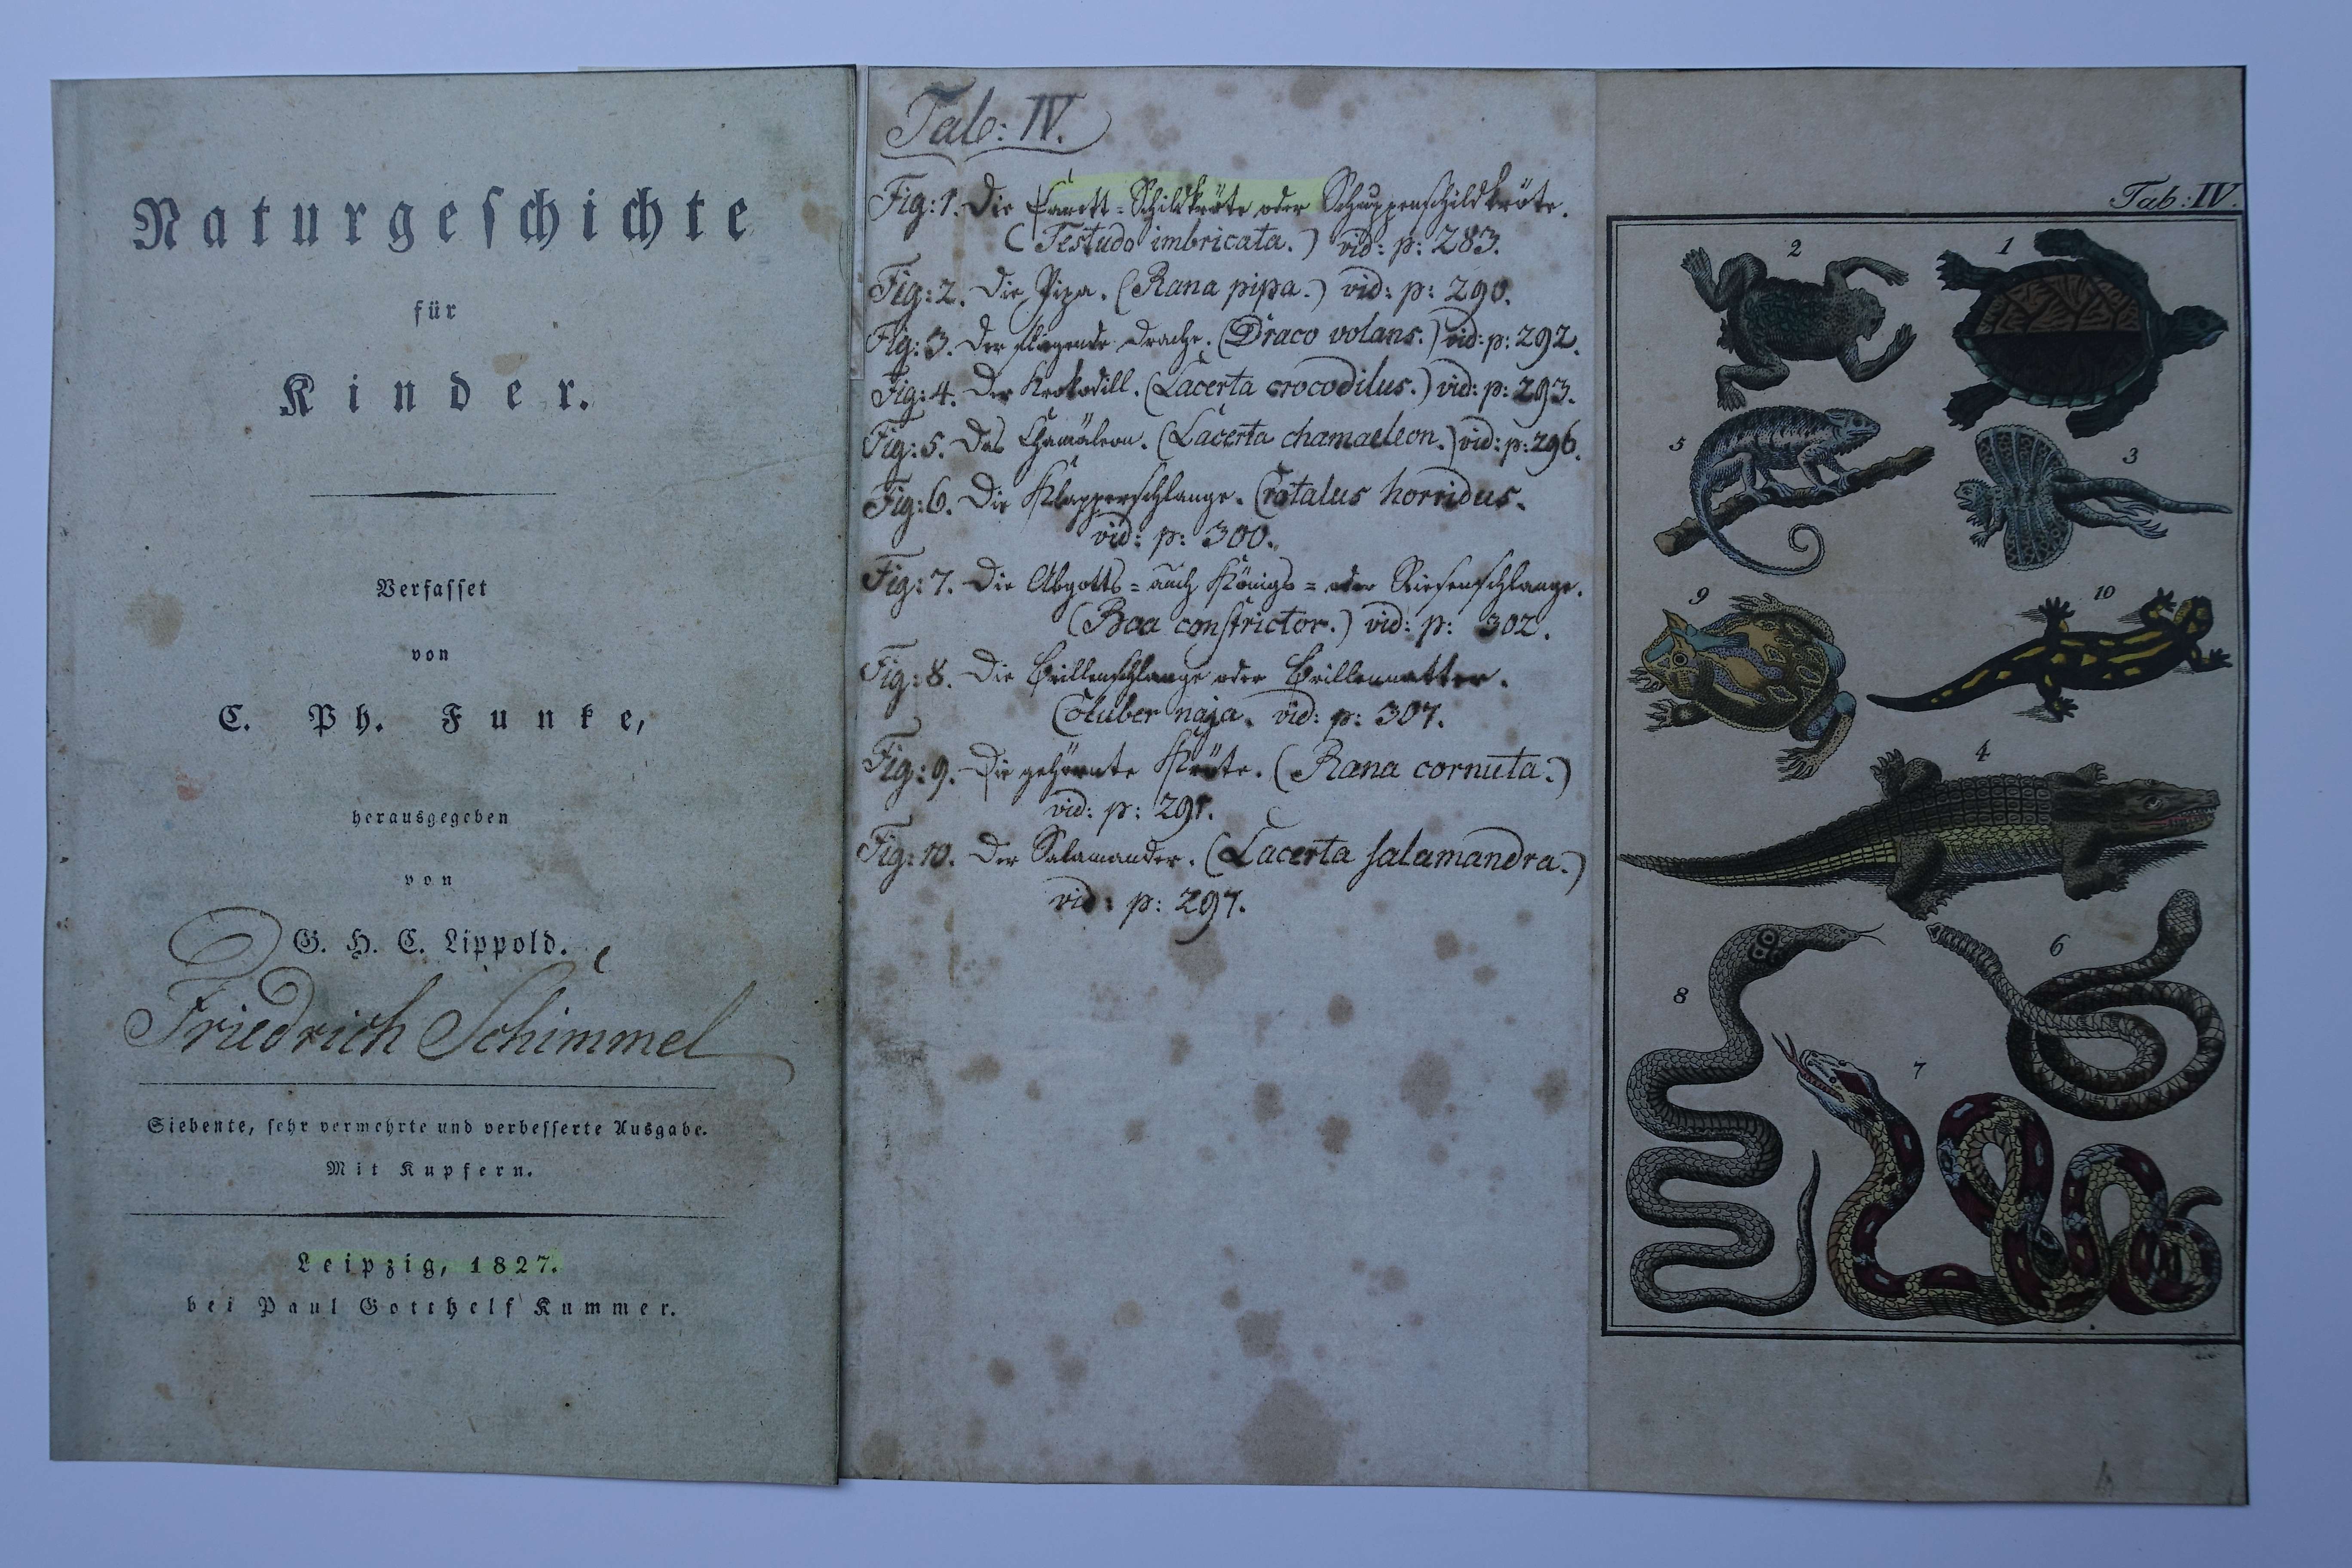 Naturgeschichte
für
Kinder.
Verfasset
von
C. Ph. Funke,
herausgegeben
von
G. H. C. Lippold.
Friedrich Schimmel
Siebente, sehr vermehrte und verbesserte Ausgabe.
Mit Kupfern.
Leipzig, 1827.
bei Paul Gotthelf Kummer.
Tab: IV.
Fig: 1. Die Carett-Schildkröte oder Schuppenschildkröte.
(Testudo imbricata.) vid: p: 283.
Fig: 2. Die Pipa. (Rana pipa.) vid: p: 290.
Fig: 3. Der fliegende Drache. (Draco volans.) vid: p: 292.
Fig: 4. Der Krokodill. (Lacerta crocodilus.) vid: p: 293.
Fig: 5. Das Chamäleon. (Lacerta chamaeleon.) vid: p: 296.
Fig: 6. Die Klapperschlange. Crotalus horridus.
vid: p: 300.
Fig: 7. Die Abgotts= auch Königs= oder Riesenschlange.
(Boa constrictor.) vid: p: 302.
Fig: 8. Die Brillenschlange oder Brillennatter.
Coluber naja. vid: p: 307.
Fig: 9. Die gehörnte Kröte. (Rana cornuta.)
vid: p: 291.
Fig: 10. Der Salamander. (Lacerta salamandra.)
vid: p: 297.
Tab: IV.
2
1
5
3
9
10
4
6
8
7